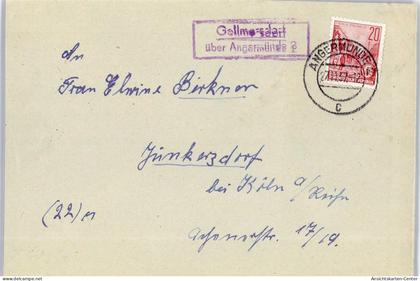 Gellmersdorf
über Angermünde 2
ANGERMÜNDE
c
20
An
Frau Elwine Birkner
Junkersdorf
bei Köln a/
Rhein
(22)
17/19.
Ansichtskarten-Center